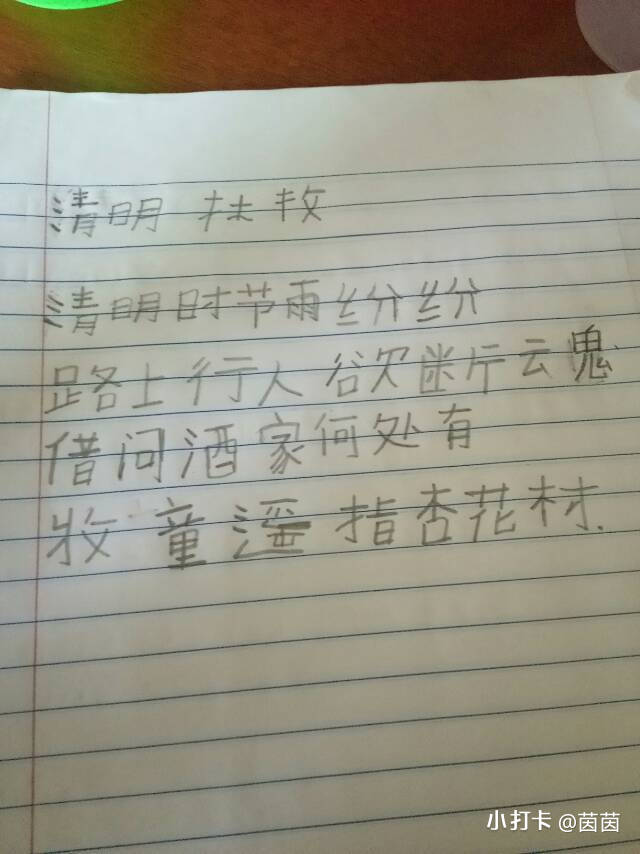 清明 杜牧
清明时节雨纷纷
路上行人欲断云鬼
借问酒家何处有
牧童遥指杏花村.
小打卡 @茵茵